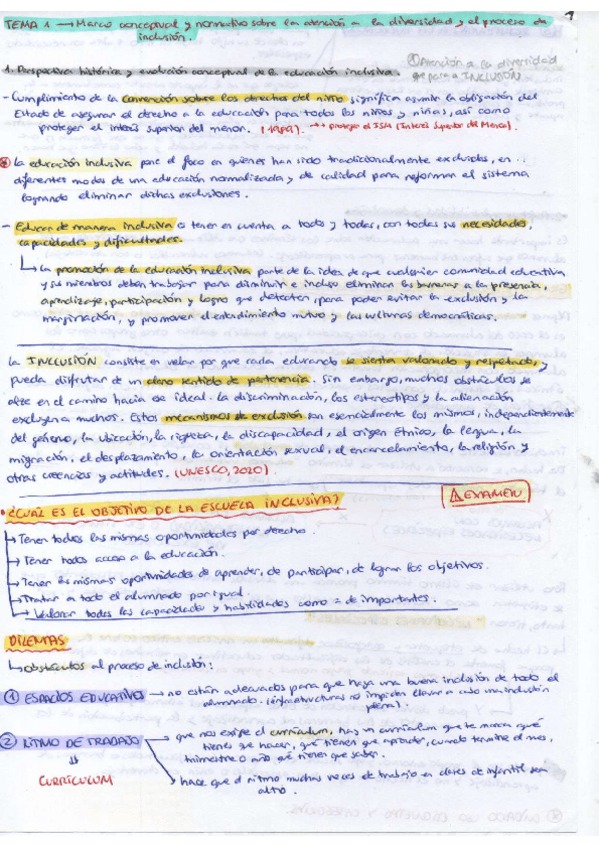 1
TEMA 1 → Marco conceptual y normativo sobre la atención a la diversidad y el proceso de
inclusión.
1. Perspectiva histórica y evolución conceptual de la educación inclusiva.
Atención a la diversidad
que pasa a INCLUSIÓN
- Cumplimiento de la convención sobre los derechos del niño significa asumir la obligación del
Estado de asegurar el derecho a la educación para todos los niños y niñas, así como
proteger el interés superior del menor. (1989). → proteger el ISM (Interés Superior del Menor).
La educación inclusiva pone el foco en quienes han sido tradicionalmente excluidos, en
diferentes modos de una educación normalizada y de calidad para reformar el sistema
logrando eliminar dichas exclusiones.
- Educar de manera inclusiva es tener en cuenta a todos y todas, con todas sus necesidades,
capacidades y dificultades.
La promoción de la educación inclusiva parte de la idea de que cualquier comunidad educativa
y sus miembros deben trabajar para disminuir e incluso eliminar las barreras a la presencia,
aprendizaje, participación y logro que detecten, para poder evitar la exclusión y la
marginación, y promover el entendimiento mutuo y las culturas democráticas.
La INCLUSIÓN consiste en velar por que cada educando se sienta valorado y respetado, y
pueda disfrutar de un claro sentido de pertenencia. Sin embargo, muchos obstáculos se
alzan en el camino hacia ese ideal. la discriminación, los estereotipos y la alienación
excluyen a muchos. Estos mecanismos de exclusión son esencialmente los mismos, independientemente
del género, la ubicación, la riqueza, la discapacidad, el origen étnico, la lengua, la
migración, el desplazamiento, la orientación sexual, el encarcelamiento, la religión y
otras creencias y actitudes. (UNESCO, 2020)
¿CUÁL ES EL OBJETIVO DE LA ESCUELA INCLUSIVA?
EXAMEN
→ Tener todos las mismas oportunidades por derecho.
→ Tener todos acceso a la educación.
→ Tener las mismas oportunidades de aprender, de participar, de lograr los objetivos.
→ Tratar a todo el alumnado por igual.
→ Valorar todas las capacidades y habilidades como = de importantes.
DILEMAS
obstáculos al proceso de inclusión:
1 ESPACIOS EDUCATIVOS → no están adecuados para que haya una buena inclusión de todo el
alumnado. (infraestructuras no impiden llevar a cabo una inclusión
plena).
2 RITMO DE TRABAJO → que nos exige el currículum, hay un currículum que te marca qué
tienes que hacer, qué tienen que aprender, cuando termine el mes,
trimestre o año qué tienen que saber.
CURRÍCULUM
hace que el ritmo muchas veces de trabajo en clases de infantil sea
alto.